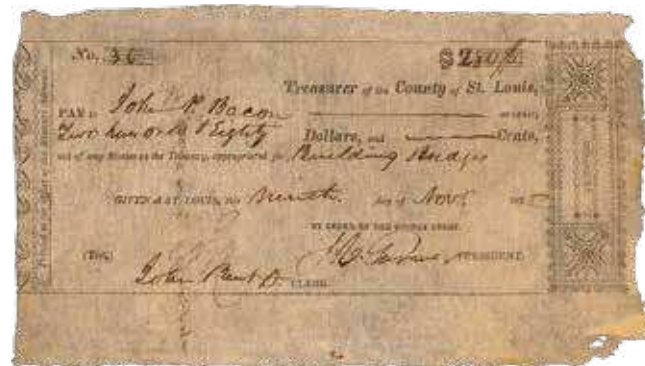 No. 36 $280/
Treasurer of the County of St. Louis,
PAY to John P. Bacon or order,
Two hundred & Eighty Dollars, and Cents,
out of any Monies in the Treasury, appropriated for Building Bridges
GIVEN at ST. LOUIS, this Ninth day of Nov. 185
BY ORDER OF THE COUNTY COURT.
PRESIDENT.
John CLERK.